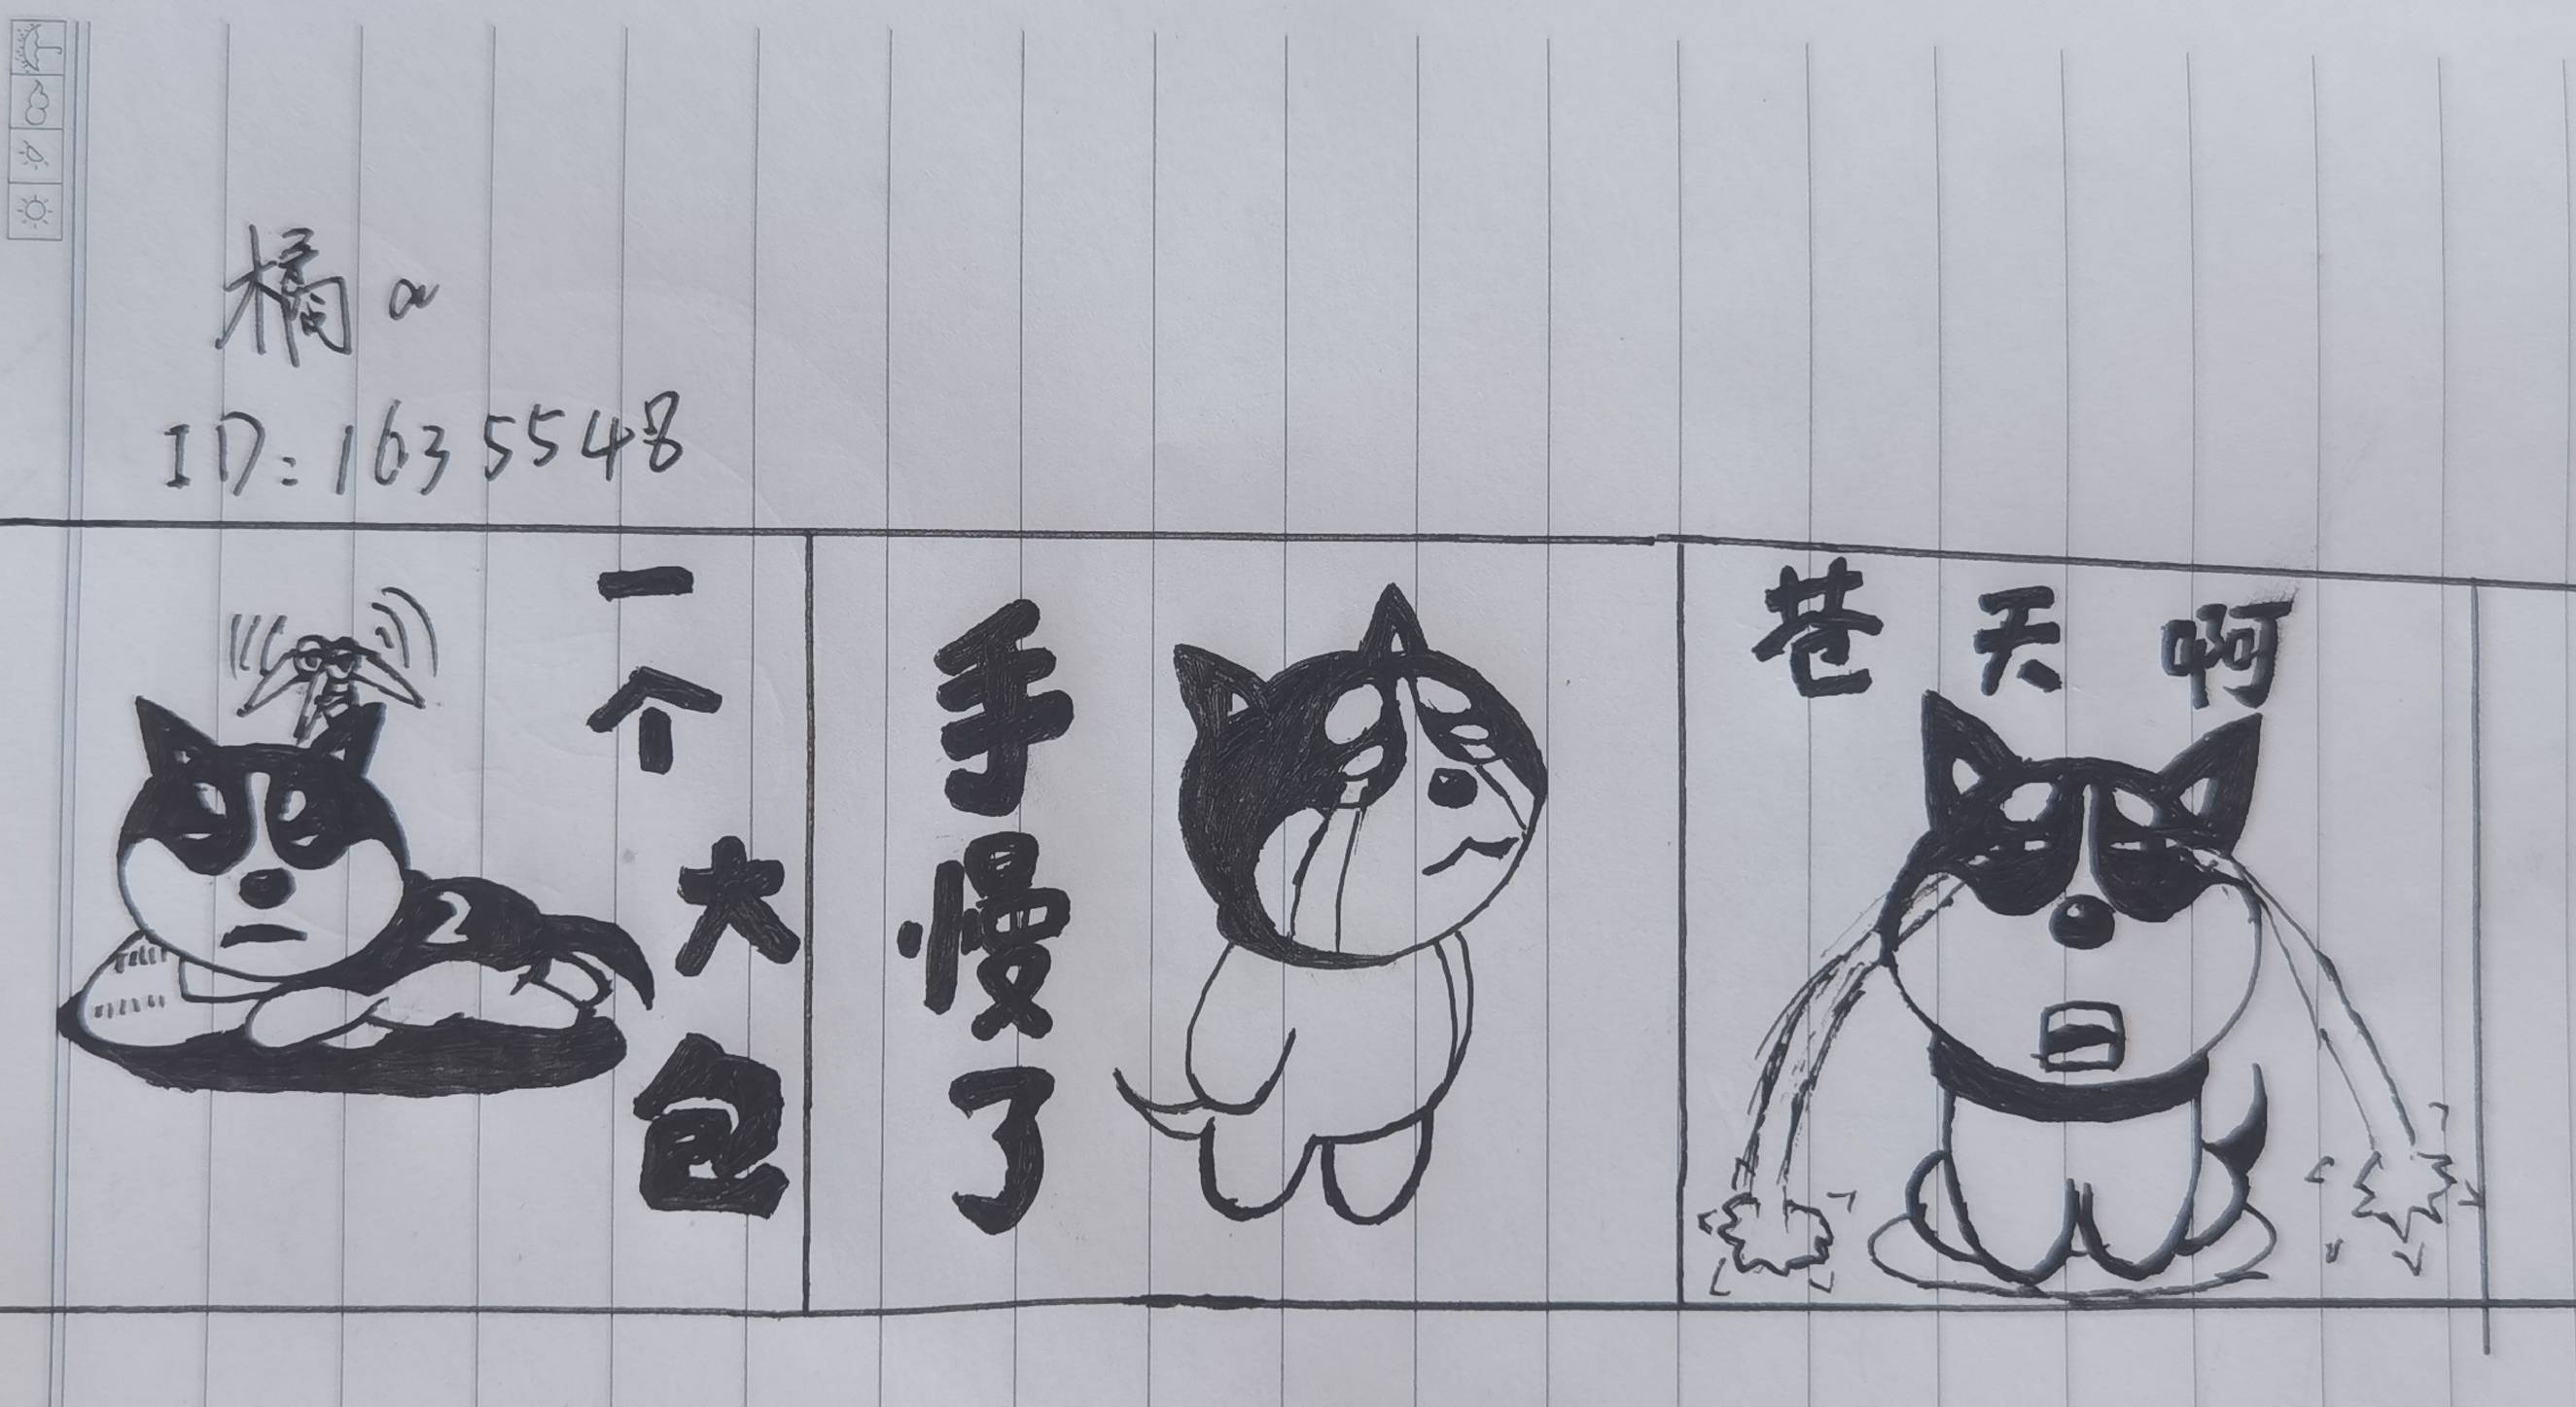 橘α
ID:1635548
一个大包
2
手慢了
苍天啊